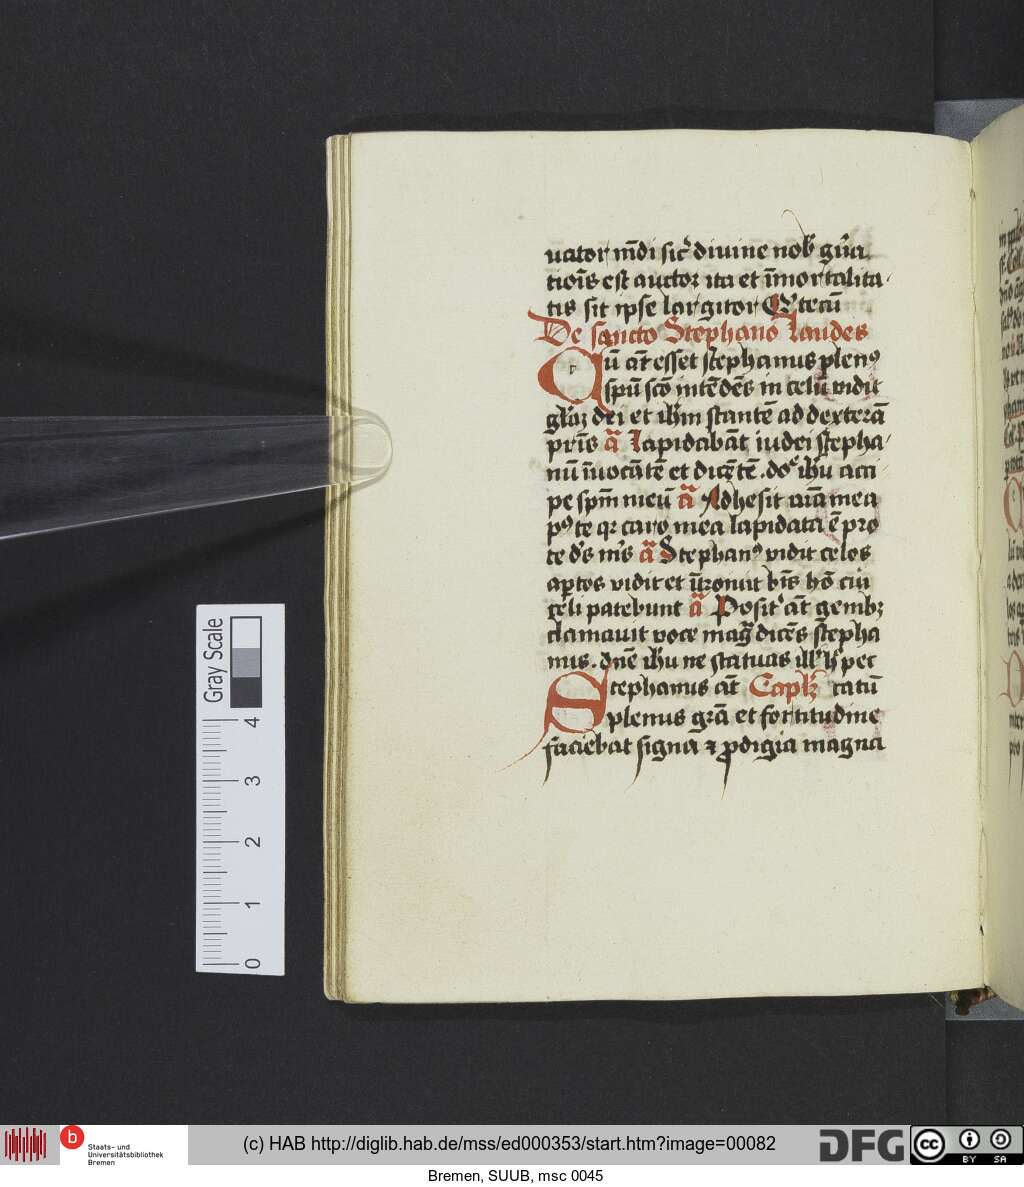 uator mͫdi sic̃ diuine nob̾ gñа
tiois̃ est auctor ita et ĩmortalita
tis sit ipse largitor Q tecũ
De sancto Stephano laudes
Cũ aũt esset stephanus plenꝰ
spũ scõ intẽdẽs in celũ vidit
glãꝫ dei et ihm̃ stantẽ ad dexterã
pris̃ ã Lapidabãt iudei stepha
nũ ĩuocãtẽ et dicẽtẽ . dñe ihũ acci
pe spm̃ meũ ã Adhesit aĩa mea
pꝰ te qꝛ caro mea lapidata ẽ pro
te ds̃ ms̃ ã Stephanꝰ vidit celos
aꝑtos vidit et ĩtroiuit btũs hõ cui
celi patebunt ã Positꝭ aũt genibꝫ
clamauit voce magͣ dicẽs stepha
nus . dñe ihũ ne statuas ill' h' pec
Stephanus aũt Capl̃m catũ
plenus grã et fortitudine
faciebat signa ⁊ ꝓdigia magna
Gray Scale
0 1 2 3 4
b Staats- und
Universitätsbibliothek
Bremen
(c) HAB http://diglib.hab.de/mss/ed000353/start.htm?image=00082
DFG
cc BY SA
Bremen, SUUB, msc 0045